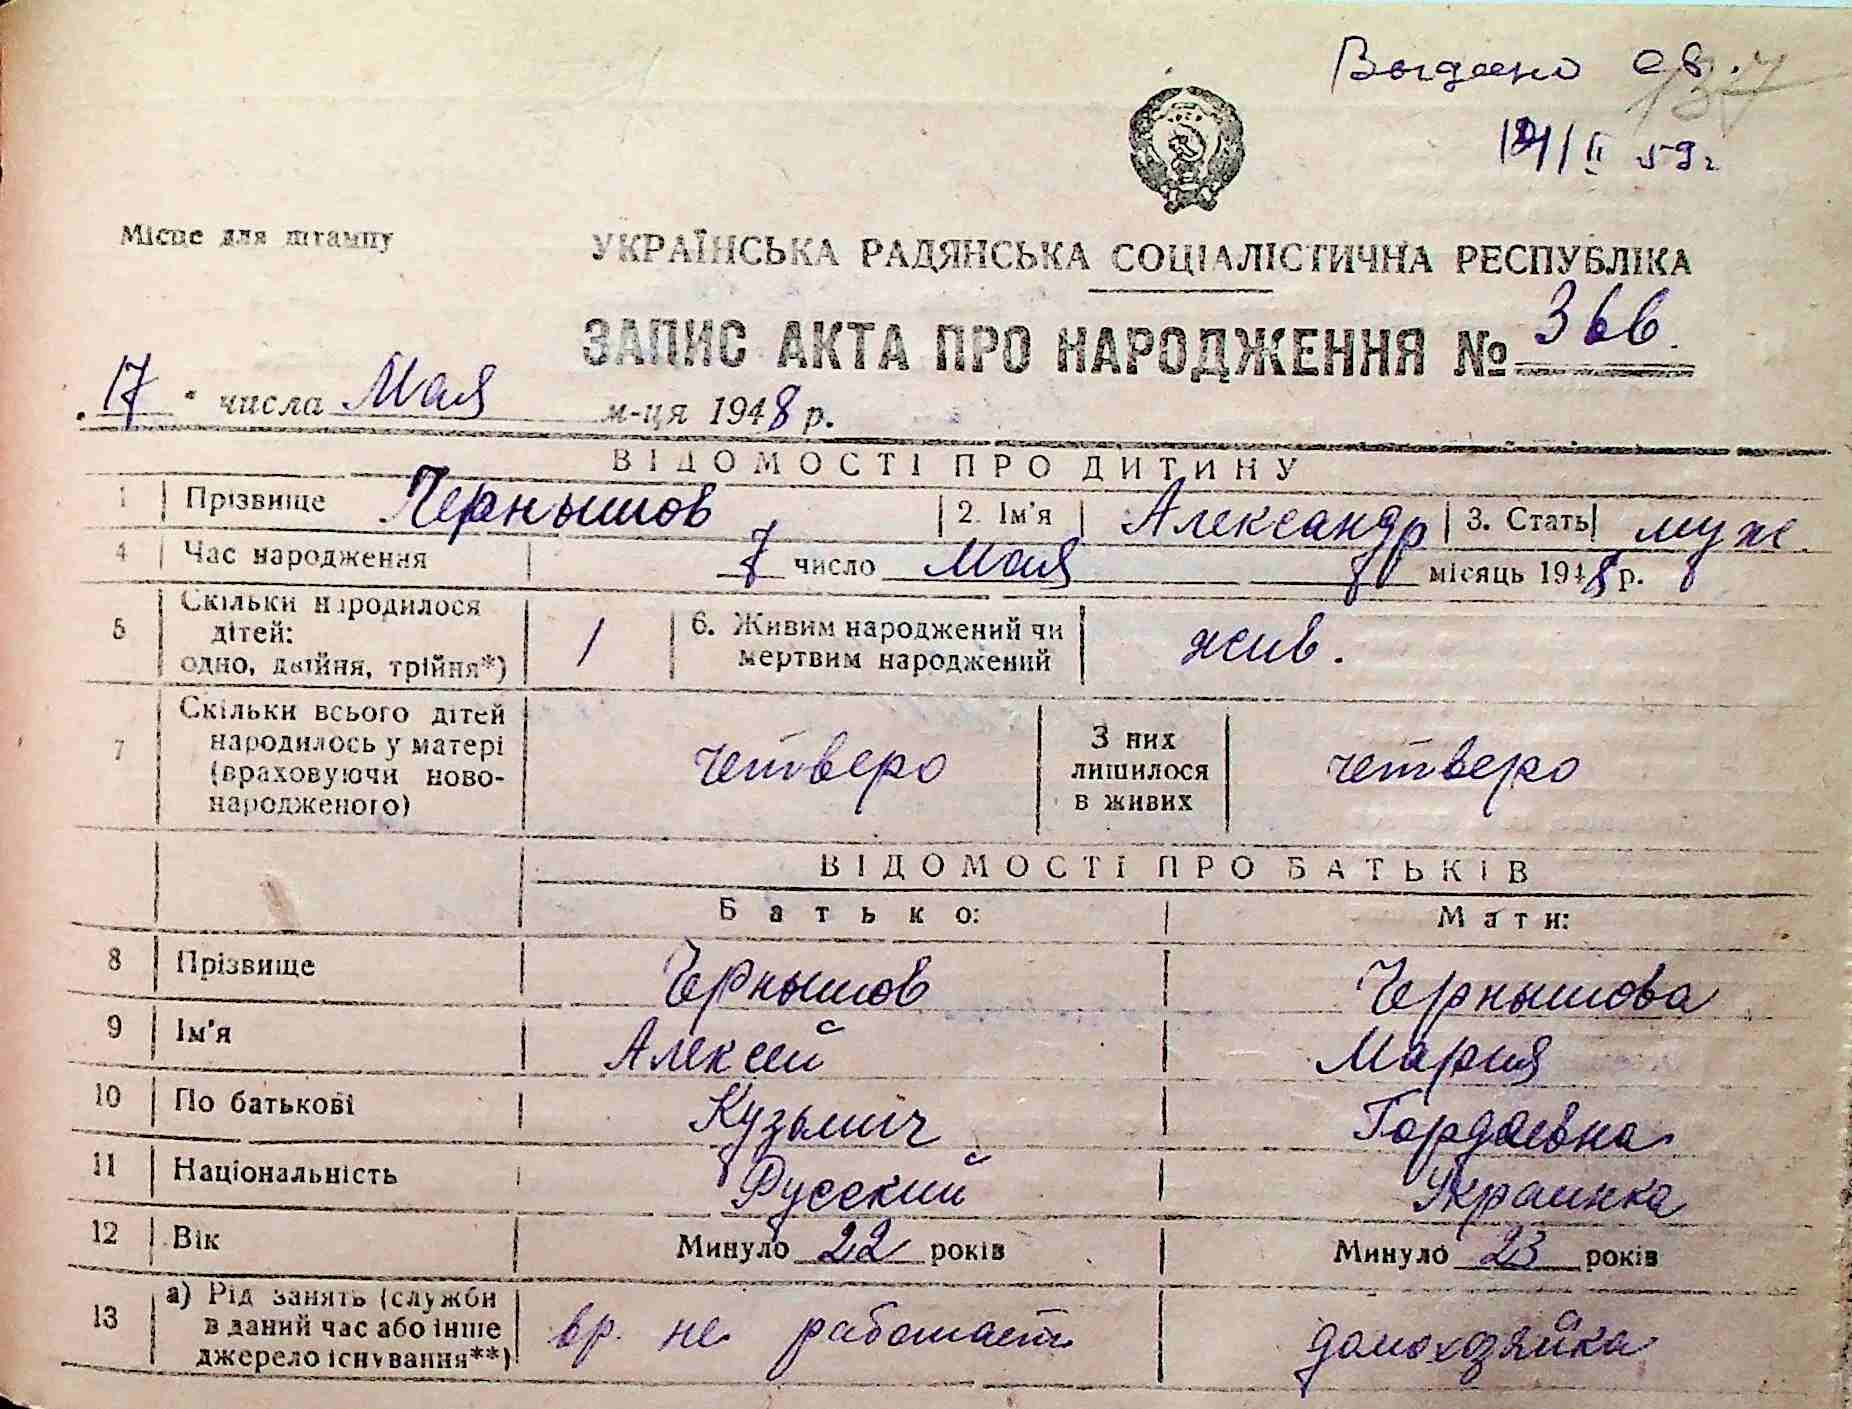 Выдано св.
137
Місце для штампу
УКРАЇНСЬКА РАДЯНСЬКА СОЦІАЛІСТИЧНА РЕСПУБЛІКА
ЗАПИС АКТА ПРО НАРОДЖЕННЯ № 366.
„17" числа Мая м-ця 1948 р.
ВІДОМОСТІ ПРО ДИТИНУ
1 Прізвище Чернышов 2. Ім'я Александр 3. Стать муж.
4 Час народження 7 число Мая місяць 1948 р.
5 Скільки народилося
дітей:
одно, двійня, трійня*) 1
6. Живим народжений чи
мертвим народжений жив.
7 Скільки всього дітей
народилось у матері
(враховуючи ново-
народженого) четверо
З них
лишилося
в живих четверо
ВІДОМОСТІ ПРО БАТЬКІВ
Батько: Мати:
8 Прізвище Чернышов Чернышова
9 Ім'я Алексей Мария
10 По батькові Кузьмич Гордеевна
11 Національність Русский Украинка
12 Вік Минуло 22 років Минуло 23 років
13 а) Рід занять (служби
в даний час або інше
джерело існування**) вр. не работает домохозяйка